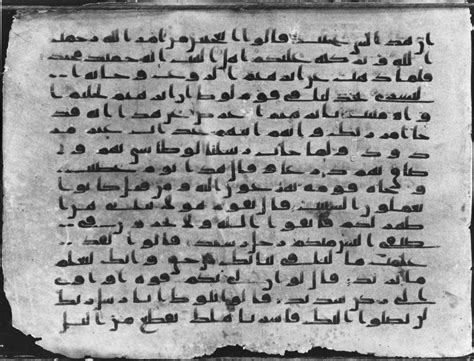 ان هذا لشى عجيب قالوا اتعجبين من امر الله رحمت
الله وبركته عليكم اهل البيت انه حميد مجيد
فلما ذهب عن ابرهيم الروع وجاته ا
لبشرى يجدلنا في قوم لوط ان ابرهيم لحليم ا
وه منيب يابرهيم اعرض عن هذا انه قد
جا امر ربك وانهم اتيهم عذاب غير مر
دود ولما جات رسلنا لوطا سى بهم و
ضاق بهم ذرعا وقال هذا يوم عصيب
و جاه قومه يهرعون اليه ومن قبل كانوا
يعملون السيات قال يقوم هولا بناتي هن ا
طهر لكم فاتقوا الله ولا تخزون في
ضيفي اليس منكم رجل رشيد قالوا لقد
علمت ما لنا في بناتك من حق وانك لتعلم
ما نريد قال لو ان لي بكم قوه او اوي
الى ركن شديد قالوا يلوط انا رسل ربك
لن يصلوا اليك فاسر باهلك بقطع من اليل